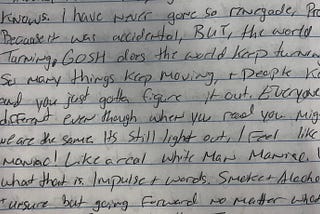 Knows. I have never gone so renegade, Pro
Because it was accidental, BUT, the world
Turning, GOSH does the world keep turnin
So many things keep moving, + People K
and you just gotta figure it out. Everyone
different even though when you read you mig
we are the same. Its still light out, I feel like
maniac! Like a real white Man Maniac.
what that is. Impulse + words. Smoke + Alcoho
+ unsure but going Forward no matter what